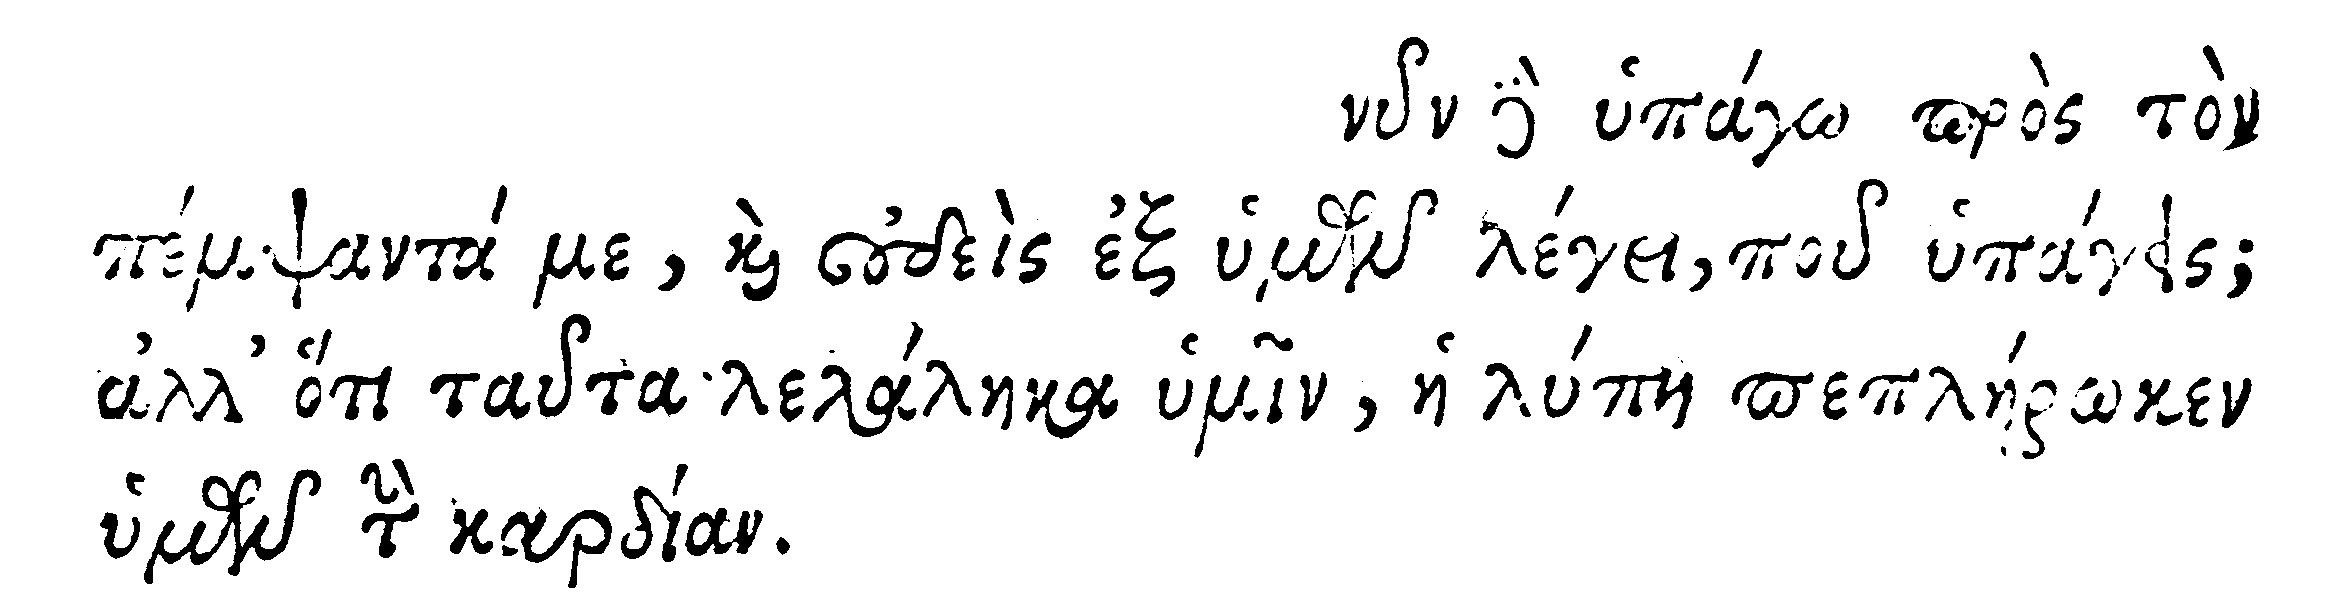 νῦν δὲ ὑπάγω πρὸς τὸν
πέμψαντά με, ϗ̀ οὐδεὶς ἐξ ὑμῶν λέγει, ποῦ ὑπάγεις;
ἀλλ᾽ ὅτι ταῦτα λελάληκα ὑμῖν, ἡ λύπη πεπλήρωκεν
ὑμῶν τὴν καρδίαν.